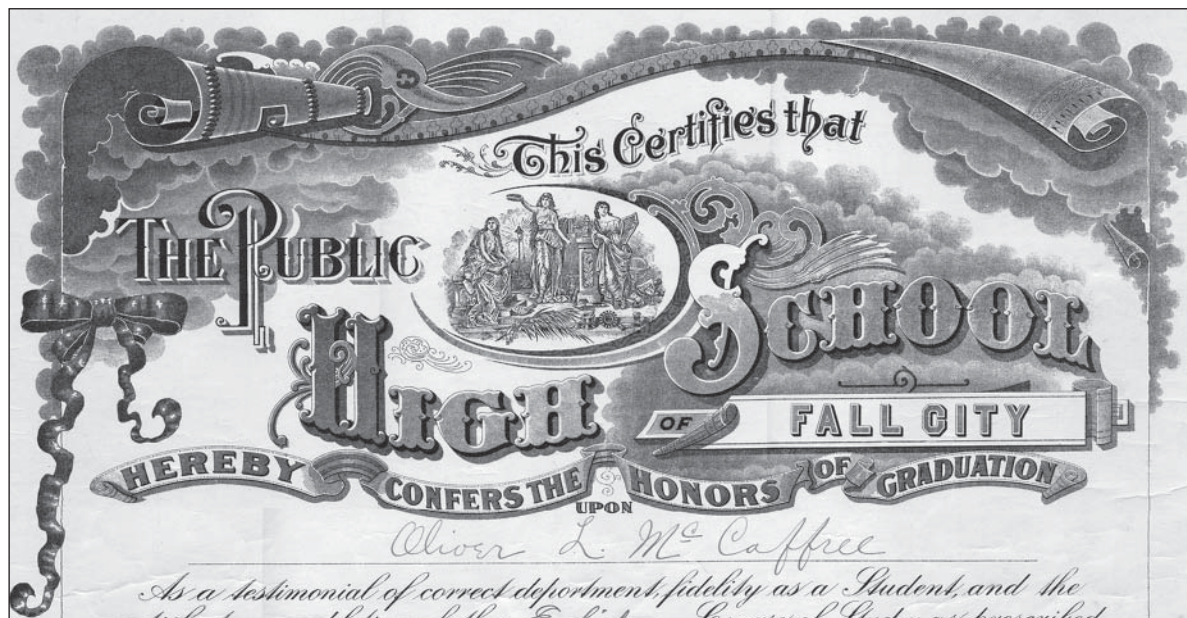 This Certifies that
THE PUBLIC
HIGH SCHOOL
OF FALL CITY
HEREBY CONFERS THE HONORS OF GRADUATION
UPON
Oliver L. Mc Caffree
As a testimonial of correct deportment, fidelity as a Student, and the
of Study as prescribed